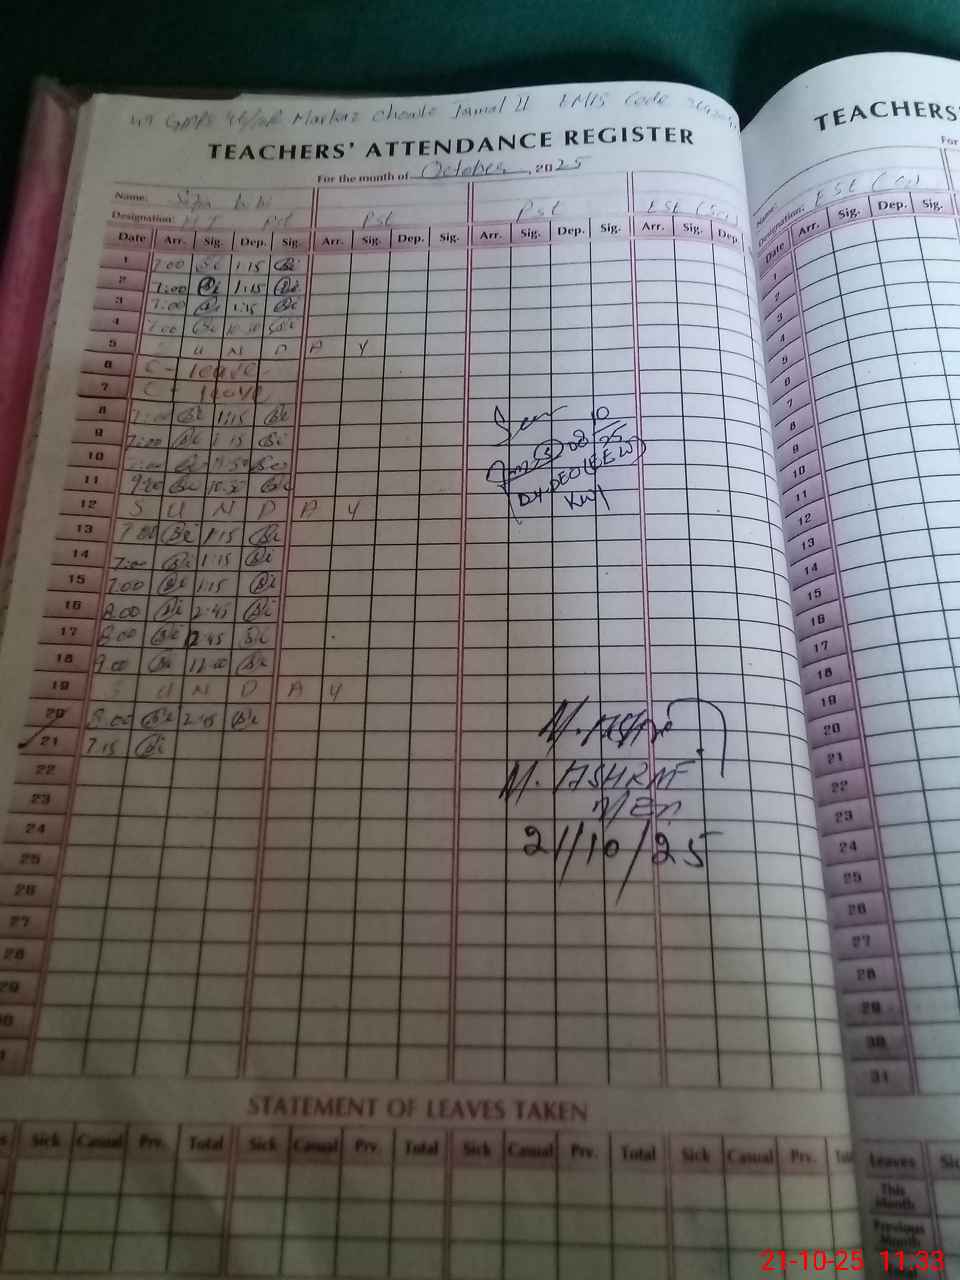 Markaz Chowk Jamal II EMIS Code
TEACHERS' ATTENDANCE REGISTER
For the month of October, 2025
Name: bibi
Designation: HT Pst Pst Pst ESt (Sci)
Date Arr. Sig. Dep. Sig. Arr. Sig. Dep. Sig. Arr. Sig. Dep. Sig. Arr. Sig. Dep.
1 7:00 Bi 1:15 Bi
2 7:00 Bi 1:15 Bi
3 7:00 Bi 1:15 Bi
4 7:00 Bi 10:30 Bi
5 S U N D A Y
6 C - leave
7 C - leave
8 7:00 Bi 1:15 Bi
9 7:00 Bi 1:15 Bi
10
11 Bi 10:30 Bi
12 S U N D A Y
13 7:00 Bi 1:15 Bi
14 7:00 Bi 1:15 Bi
15 7:00 Bi 1:15 Bi
16 8:00 Bi 2:45 Bi
17 8:00 Bi 2:45 Bi
18 9:00 Bi 12:00 Bi
19 S U N D A Y
20 8:00 Bi 2:45 Bi
21 7:15 Bi
22
23
24
25
26
27
28
29
Seen
08/10/25
DY.DEO(EEW)
KWl
M. ASHRAF
21/10/25
STATEMENT OF LEAVES TAKEN
Sick Casual Prv. Total Sick Casual Prv. Total Sick Casual Prv. Total Sick Casual Prv.
TEACHERS'
For
Name:
Designation: ESt (Sci)
Date Arr. Sig. Dep. Sig.
1
2
3
4
5
6
7
8
9
10
11
12
13
14
15
16
17
18
19
20
21
22
23
24
25
26
27
28
29
30
31
Leaves
This Month
Previous Month
21-10-25 11:33